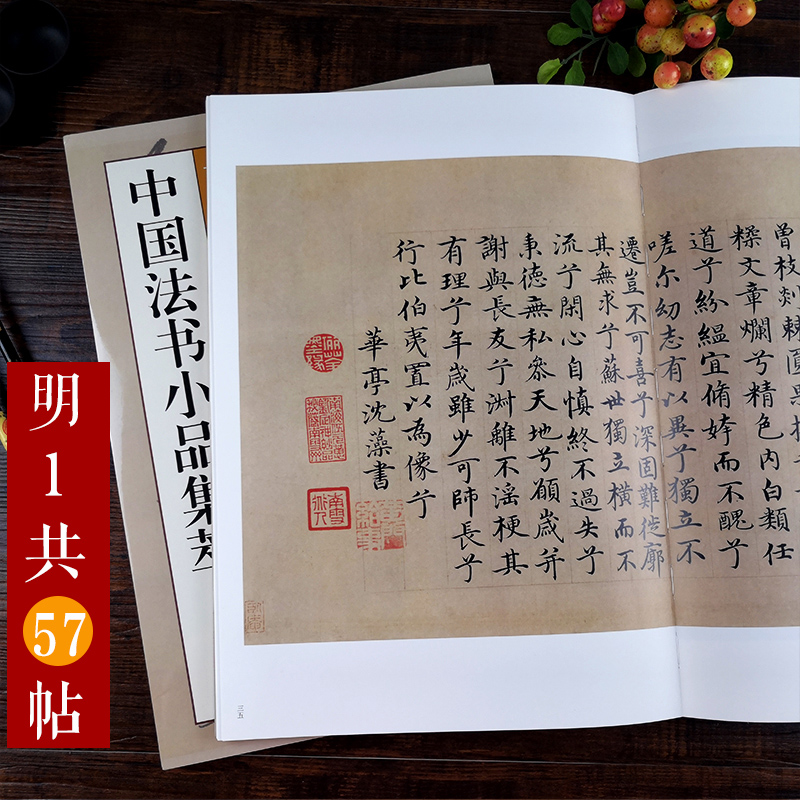 明1共57帖
中国法书小品集萃
曾枝剡棘
糅文章爛兮精色内白類任
道兮紛緼宜脩姱而不醜兮
嗟尔幼志有以異兮獨立不
遷豈不可喜兮深固難徙廓
其無求兮蘇世獨立橫而不
流兮閑心自慎終不過失兮
秉德無私參天地兮願歲并
謝與長友兮淑離不淫梗其
有理兮年歲雖少可師長兮
行比伯夷置以為像兮
華亭沈藻書
三五